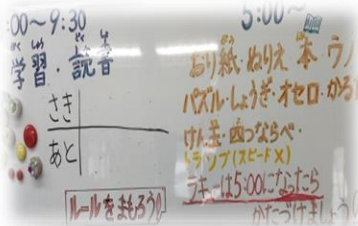 :00~9:30
学習・読書
さき
あと
ルールをまもろう!
5:00~
おり紙・ぬりえ 本 ウノ
パズル・しょうぎ・オセロ・かる
けん玉・四つならべ・
トランプ(スピード×)
ラキューは5:00になったら
かたづけましょう